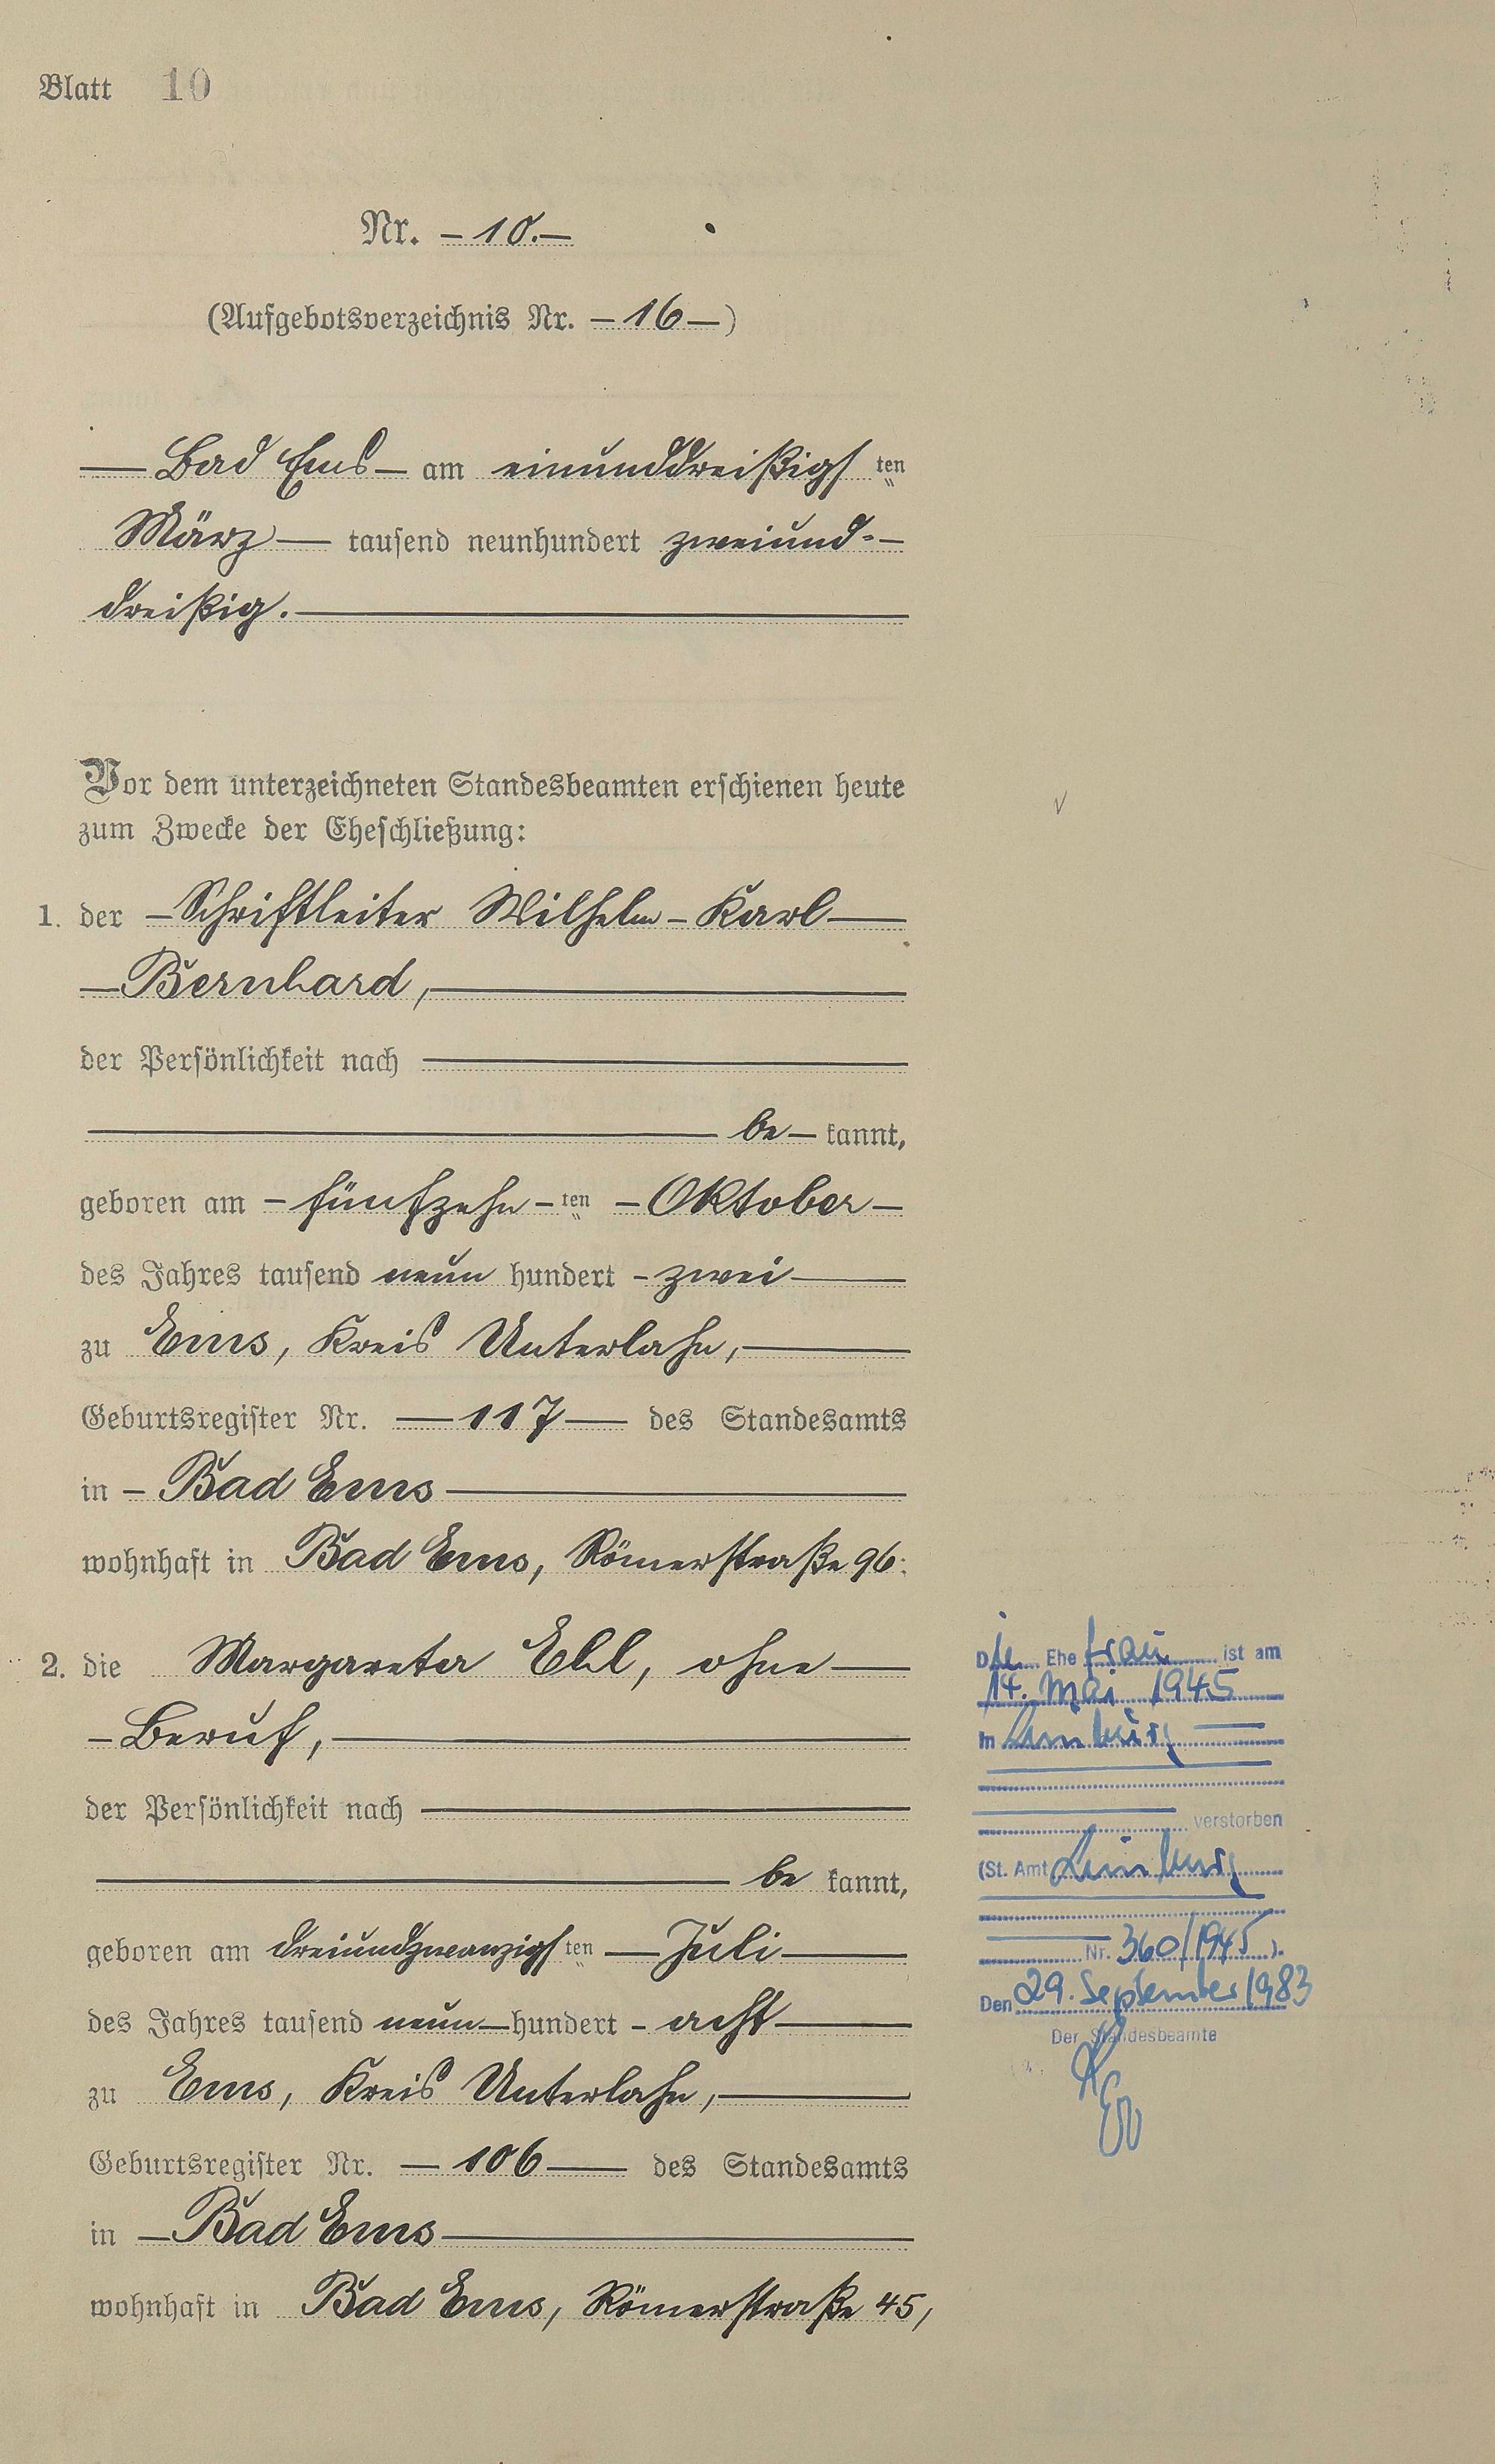 Blatt 10
Nr. - 10. -
(Aufgebotsverzeichnis Nr. - 16 - )
Bad Ems - am einunddreißigsten
März - tausend neunhundert zweiund-
dreißig.
Vor dem unterzeichneten Standesbeamten erschienen heute
zum Zwecke der Eheschließung:
1. der - Schriftleiter Wilhelm - Karl -
- Bernhard,
der Persönlichkeit nach
be - kannt,
geboren am - fünfzehn - ten - Oktober -
des Jahres tausend neun hundert - zwei
zu Ems, Kreis Unterlahn,
Geburtsregister Nr. - 117 - des Standesamts
in - Bad Ems
wohnhaft in Bad Ems, Römerstraße 96.
2. die Margareta Ebl, ohne
- Beruf,
der Persönlichkeit nach
be kannt,
geboren am dreiundzwanzigsten - Juli
des Jahres tausend neun - hundert - acht
zu Ems, Kreis Unterlahn,
Geburtsregister Nr. - 106 - des Standesamts
in - Bad Ems
wohnhaft in Bad Ems, Römerstraße 45,
Die Ehefrau ist am
14. Mai 1945
in Limburg
verstorben
(St. Amt Limburg
Nr. 360/1945).
Den 29. September 1983
Der Standesbeamte